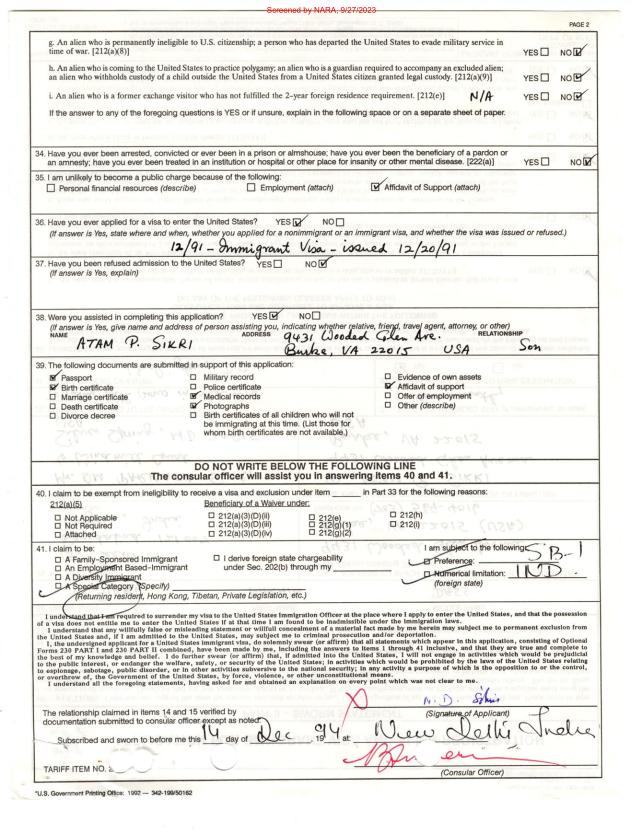 Screened by NARA, 9/27/2023
PAGE 2
g. An alien who is permanently ineligible to U.S. citizenship; a person who has departed the United States to evade military service in
time of war. [212(a)(8)] YES☐ NO☑
h. An alien who is coming to the United States to practice polygamy; an alien who is a guardian required to accompany an excluded alien;
an alien who withholds custody of a child outside the United States from a United States citizen granted legal custody. [212(a)(9)] YES☐ NO☑
i. An alien who is a former exchange visitor who has not fulfilled the 2-year foreign residence requirement. [212(e)] N/A YES☐ NO☑
If the answer to any of the foregoing questions is YES or if unsure, explain in the following space or on a separate sheet of paper.
34. Have you ever been arrested, convicted or ever been in a prison or almshouse; have you ever been the beneficiary of a pardon or
an amnesty; have you ever been treated in an institution or hospital or other place for insanity or other mental disease. [222(a)] YES☐ NO☑
35. I am unlikely to become a public charge because of the following:
☐ Personal financial resources (describe) ☐ Employment (attach) ☑ Affidavit of Support (attach)
36. Have you ever applied for a visa to enter the United States? YES☑ NO☐
(If answer is Yes, state where and when, whether you applied for a nonimmigrant or an immigrant visa, and whether the visa was issued or refused.)
12/91 - Immigrant Visa - issued 12/20/91
37. Have you been refused admission to the United States? YES☐ NO☑
(If answer is Yes, explain)
38. Were you assisted in completing this application? YES☑ NO☐
(If answer is Yes, give name and address of person assisting you, indicating whether relative, friend, travel agent, attorney, or other)
NAME ADDRESS RELATIONSHIP
ATAM P. SIKRI 9431 Wooded Glen Ave. Son
Burke, VA 22015 USA
39. The following documents are submitted in support of this application:
☑ Passport ☐ Military record ☐ Evidence of own assets
☑ Birth certificate ☐ Police certificate ☑ Affidavit of support
☐ Marriage certificate ☑ Medical records ☐ Offer of employment
☐ Death certificate ☑ Photographs ☐ Other (describe)
☐ Divorce decree ☐ Birth certificates of all children who will not
be immigrating at this time. (List those for
whom birth certificates are not available.)
DO NOT WRITE BELOW THE FOLLOWING LINE
The consular officer will assist you in answering items 40 and 41.
40. I claim to be exempt from ineligibility to receive a visa and exclusion under item ______ in Part 33 for the following reasons:
212(a)(5) Beneficiary of a Waiver under:
☐ Not Applicable ☐ 212(a)(3)(D)(ii) ☐ 212(e) ☐ 212(h)
☐ Not Required ☐ 212(a)(3)(D)(iii) ☐ 212(g)(1) ☐ 212(i)
☐ Attached ☐ 212(a)(3)(D)(iv) ☐ 212(g)(2)
41. I claim to be: I am subject to the following:
☐ A Family-Sponsored Immigrant ☐ I derive foreign state chargeability ☐ Preference: SB-1
☐ An Employment Based-Immigrant under Sec. 202(b) through my ☐ Numerical limitation: IND.
☐ A Diversity Immigrant (foreign state)
☐ A Special Category (Specify)
(Returning resident, Hong Kong, Tibetan, Private Legislation, etc.)
I understand that I am required to surrender my visa to the United States Immigration Officer at the place where I apply to enter the United States, and that the possession
of a visa does not entitle me to enter the United States if at that time I am found to be inadmissible under the immigration laws.
I understand that any willfully false or misleading statement or willful concealment of a material fact made by me herein may subject me to permanent exclusion from
the United States and, if I am admitted to the United States, may subject me to criminal prosecution and/or deportation.
I, the undersigned applicant for a United States immigrant visa, do solemnly swear (or affirm) that all statements which appear in this application, consisting of Optional
Forms 230 PART I and 230 PART II combined, have been made by me, including the answers to items 1 through 41 inclusive, and that they are true and complete to
the best of my knowledge and belief. I do further swear (or affirm) that, if admitted into the United States, I will not engage in activities which would be prejudicial
to the public interest, or endanger the welfare, safety, or security of the United States; in activities which would be prohibited by the laws of the United States relating
to espionage, sabotage, public disorder, or in other activities subversive to the national security; in any activity a purpose of which is the opposition to or the control,
or overthrow of, the Government of the United States, by force, violence, or other unconstitutional means.
I understand all the foregoing statements, having asked for and obtained an explanation on every point which was not clear to me.
The relationship claimed in items 14 and 15 verified by
documentation submitted to consular officer except as noted: (Signature of Applicant)
Subscribed and sworn to before me this 14 day of Dec 1994 at: New Delhi India
TARIFF ITEM NO. (Consular Officer)
*U.S. Government Printing Office: 1992 — 342-199/50162